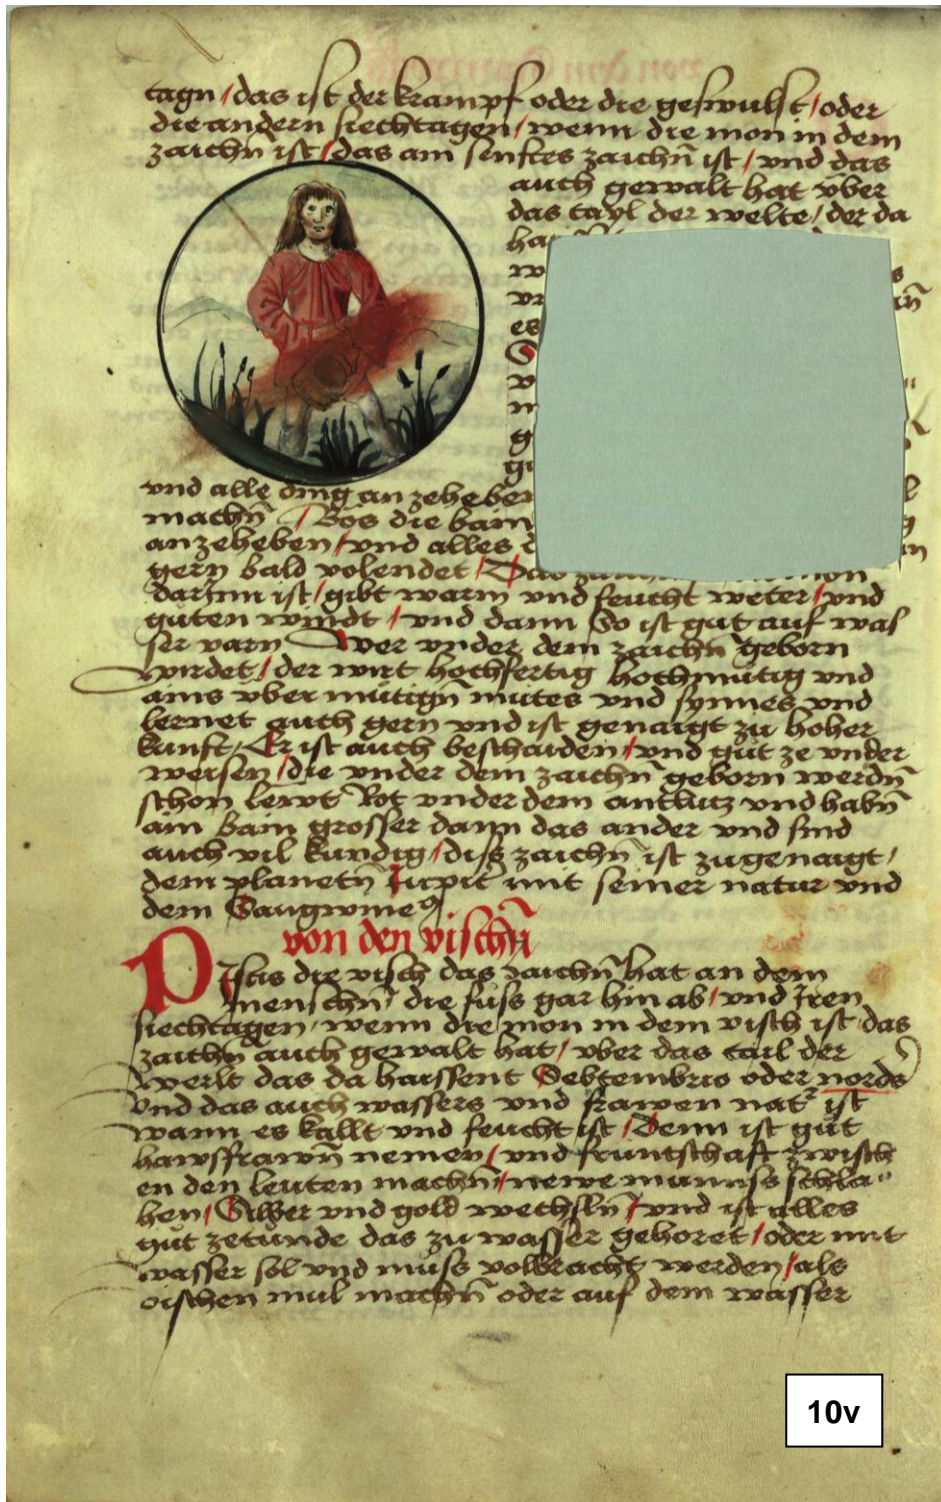 tagn / das ist der krampf oder die geswulst / oder
die andern siechtagen / wenn die mon in dem
zaichn ist / das ain senftes zaichn̄ ist / vnd das
auch gewalt hat vber
das tayl der welte / der da
ha
w
vn
es
v
m
g
vnd alle ding an zeheben
machn̄ / Bös die bäin
anzeheben / vnd alles
gern bald volendet / mon
darinn ist / gibt warm vnd feucht weter / vnd
guten windt / vnd dann So ist gut auf was
ser varn Wer vnder dem zaichn̄ geborn
wirdet / der wirt hochfertig hochmütig vnd
ains vber mütign̄ mutes vnd synnes vnd
lernet auch gern vnd ist genaigt zu hoher
kunst / Er ist auch beschaiden / vnd gut ze vnder
weisen / die vnder dem zaichn̄ geborn werdn̄
schon lewt Rot vnder dem antlutz vnd habn̄
ain bain grosser dann das ander vnd sind
auch vil kundig / diß zaichn̄ ist zugenaigt /
dem planetn̄ Jupit̉ mit seiner natur vnd
dem Sangwineꝰ
von den vischn̄
Piscis die visch das zaichn̄ hat an dem
menschn̄ / die füss gar hin ab / vnd Iren
siechtagen / wenn die mon in dem visch ist / das
zaichn auch gewalt hat / vber das tail der
werlt das da haissent Sebtembrio oder nords
Vnd das auch wassers vnd frawen nat᷑ ist
wann es kallt vnd feucht ist / Denn ist gut
hawsfrawn̄ nemen / vnd fruntschaft zwisch
en den leuten machn̄ / newe münnss schla〃
hen / Silber vnd gold wechsln̄ / vnd ist alles
gut zetunde das zu wasser gehoret / oder mit
wasser sol vnd muss volbracht werden / als
vischen mul machn̄ oder auf dem wasser
10v